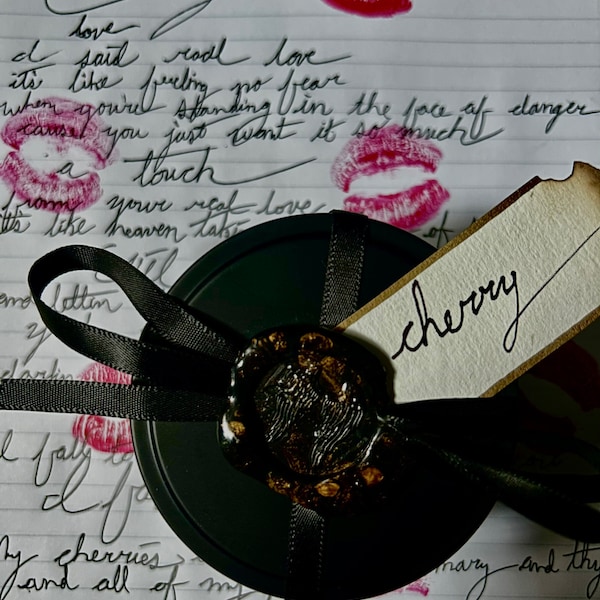 love
I said real love
it's like feeling no fear
when you're standing in the face of danger
cause you just want it so much
a touch
from your real love
it's like heaven
of
and
cherry
darlin
I fall
I fa
My cherries
mary and thy
and all of my